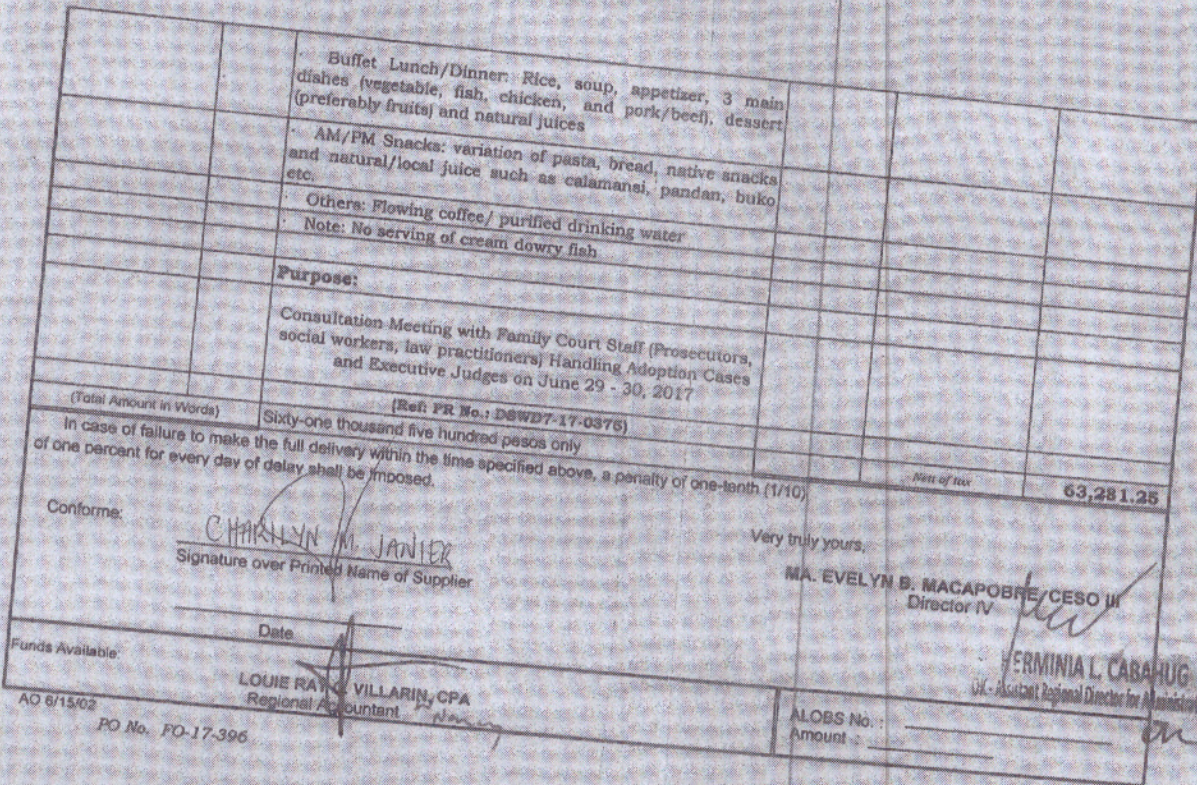 Buffet Lunch/Dinner: Rice, soup, appetizer, 3 main
dishes (vegetable, fish, chicken, and pork/beef), dessert
(preferably fruits) and natural juices
AM/PM Snacks: variation of pasta, bread, native snacks
and natural/local juice such as calamansi, pandan, buko
etc.
Others: Flowing coffee/ purified drinking water
Note: No serving of cream dowry fish
Purpose:
Consultation Meeting with Family Court Staff (Prosecutors,
social workers, law practitioners) Handling Adoption Cases
and Executive Judges on June 29 - 30, 2017
(Ref: PR No.: DSWD7-17-0376)
(Total Amount in Words) Sixty-one thousand five hundred pesos only
Nett of tax 63,281.25
In case of failure to make the full delivery within the time specified above, a penalty of one-tenth (1/10)
of one percent for every day of delay shall be imposed.
Conforme:
CHARILYN M. JANIER
Signature over Printed Name of Supplier
Date
Very truly yours,
MA. EVELYN B. MACAPOBRE, CESO III
Director IV
HERMINIA L. CABAHUG
Assistant Regional Director for
Funds Available:
LOUIE RAY VILLARIN, CPA
Regional Accountant
ALOBS No. :
Amount :
AO 6/15/02
PO No. PO-17-396